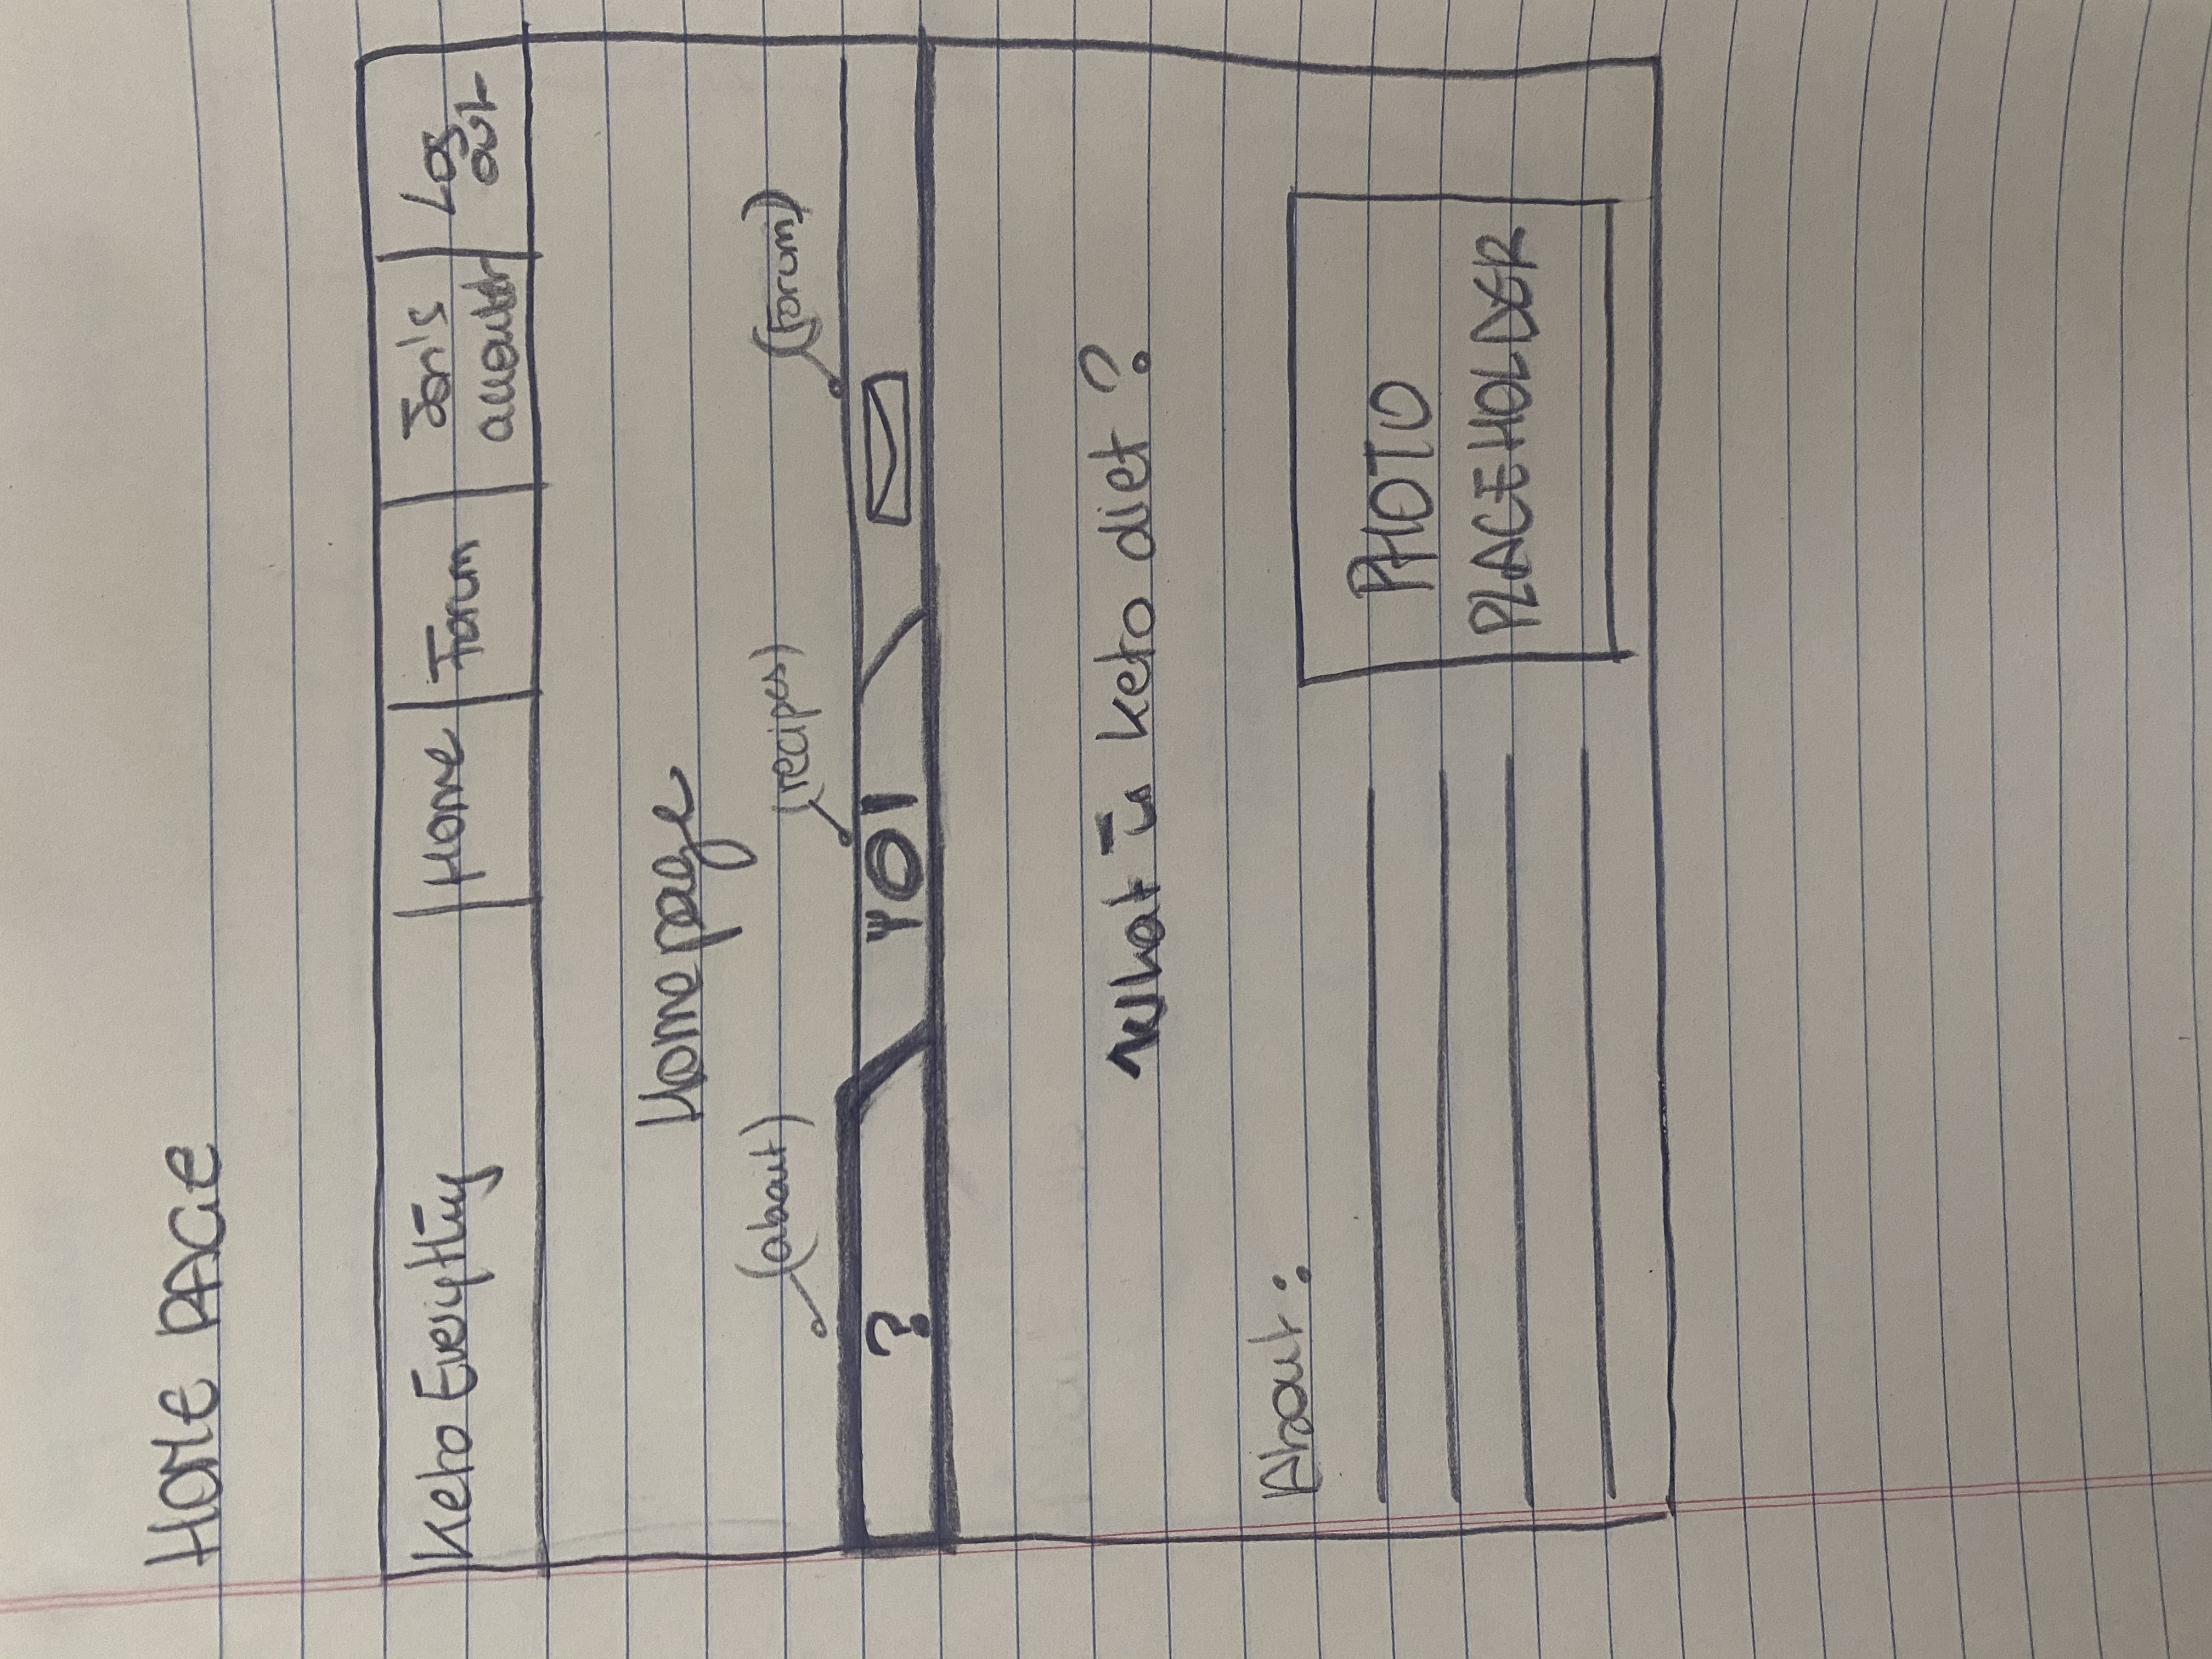 HOME PAGE
Keto Everything
Home
Forum
Jon's
account
Log
out
Homepage
(about)
(recipes)
(forum)
?
What is keto diet?
About:
PHOTO
PLACEHOLDER